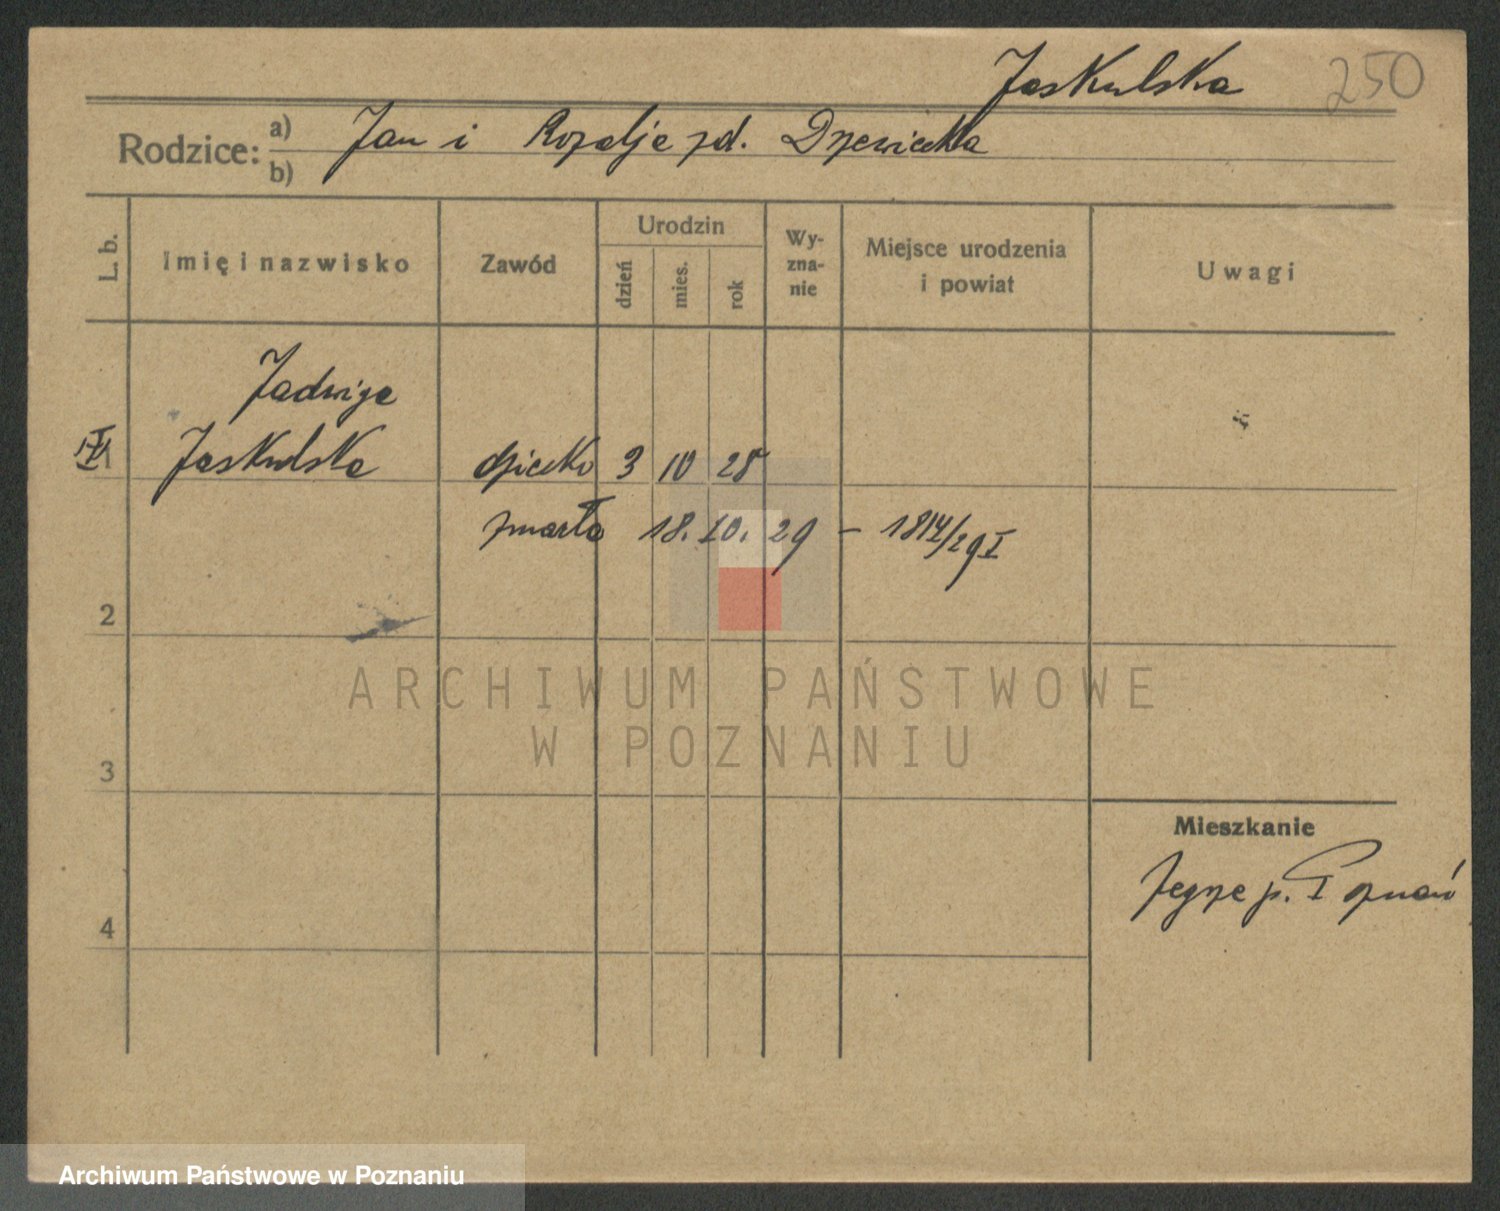 Jaskulska 250
Rodzice: a) Jan i Rozalja zd. Drzewiecka
b)
L. b. Imię i nazwisko Zawód Urodzin dzień mies. rok Wy-zna-nie Miejsce urodzenia i powiat Uwagi
Jadwiga
1 Jaskulska dziecko 3 10 28
zmarła 18. 10. 29 – 1814/29 I
2
ARCHIWUM PAŃSTWOWE
W POZNANIU
3
Mieszkanie
Żegrze p. Poznań
4
Archiwum Państwowe w Poznaniu